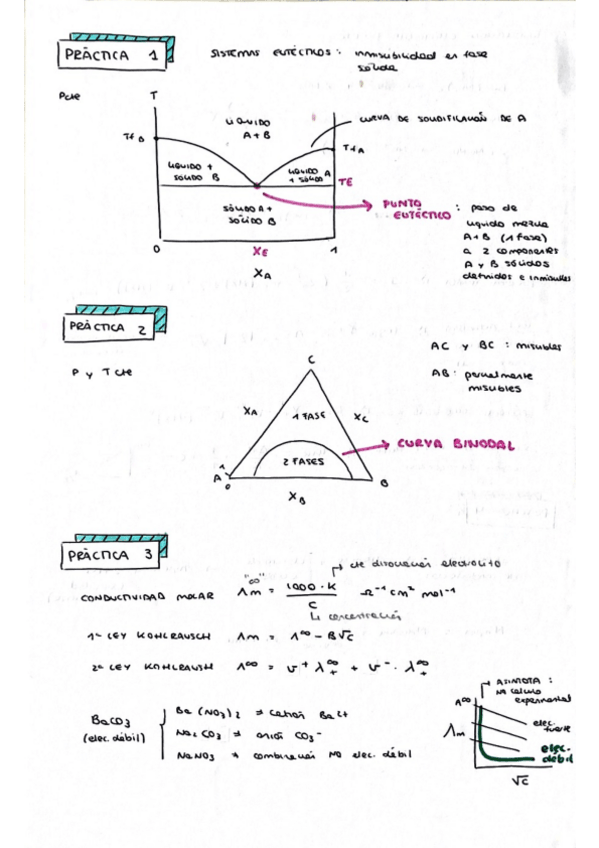 PRÀCTICA 1
SISTEMAS EUTÉCTICOS : inmiscibilidad en fase
sólida
Pcte
T
LÍQUIDO
A + B
CURVA DE SOLIDIFICACIÓN DE A
Tf B
Tf A
LIQUIDO +
SOLIDO B
LIQUIDO
+ SÓLIDO A
TE
SÓLIDO A +
SÓLIDO B
PUNTO
EUTÉCTICO : paso de
liquido mezcla
A+B (1 fase)
a 2 componentes
A y B sólidos
definidos e inmiscibles
0
XE
1
XA
PRÀCTICA 2
AC y BC : miscibles
P y T cte
AB : parcialmente
miscibles
C
XA
1 FASE
XC
CURVA BINODAL
2 FASES
1
A
0
B
XB
PRÀCTICA 3
cte disociación electrolito
CONDUCTIVIDAD MOLAR Λm "∞" = 1000 · K / C Ω⁻¹ cm² mol⁻¹
concentración
1ª LEY KOHLRAUSCH Λm = Λ∞ - B√C
2ª LEY KOHLRAUSH Λ∞ = ν+ λ+∞ + ν- · λ+∞
ASÍNTOTA :
no calculo
experimental
Λ∞
elec.
fuerte
Λm
elec.
débil
√C
BaCO3
(elec. débil)
Ba (NO3)2 ⇒ cation Ba2+
Na2CO3 ⇒ anión CO3-
NaNO3 → combinación NO elec. débil